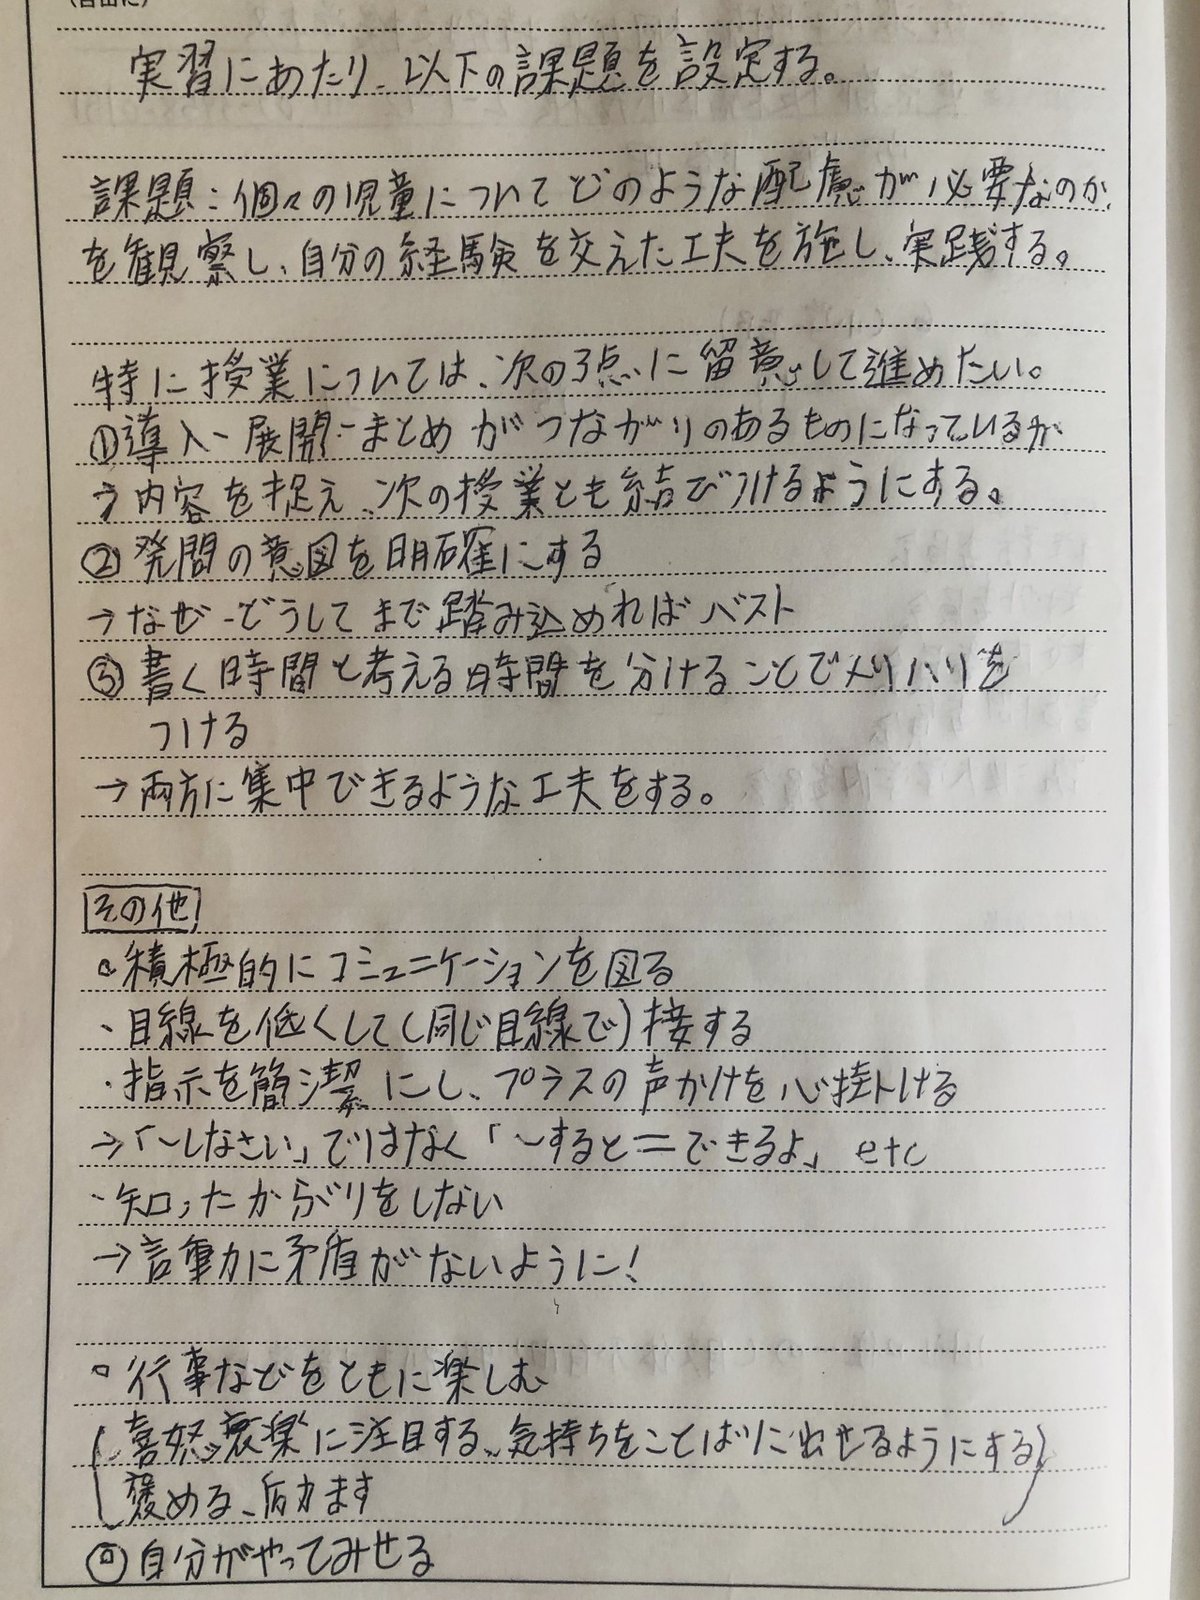 (自由に)
実習にあたり、以下の課題を設定する。
課題:個々の児童についてどのような配慮が必要なのか
を観察し、自分の経験を交えた工夫を施し、実践する。
特に授業については、次の3点に留意して進めたい。
①導入-展開-まとめがつながりのあるものになっているか
→内容を捉え、次の授業とも結びつけるようにする。
②発問の意図を明確にする
→なぜ-どうしてまで踏み込めればベスト
③書く時間と考える時間を分けることでメリハリを
つける
→両方に集中できるような工夫をする。
その他
・積極的にコミュニケーションを図る
・目線を低くして(同じ目線で)接する
・指示を簡潔にし、プラスの声かけを心掛ける
→「~しなさい」ではなく「~すると=できるよ」etc
・知ったかぶりをしない
→言動に矛盾がないように!
□行事などをともに楽しむ
(喜怒哀楽に注目する、気持ちをことばに出せるようにする
褒める、励ます)
◎自分がやってみせる